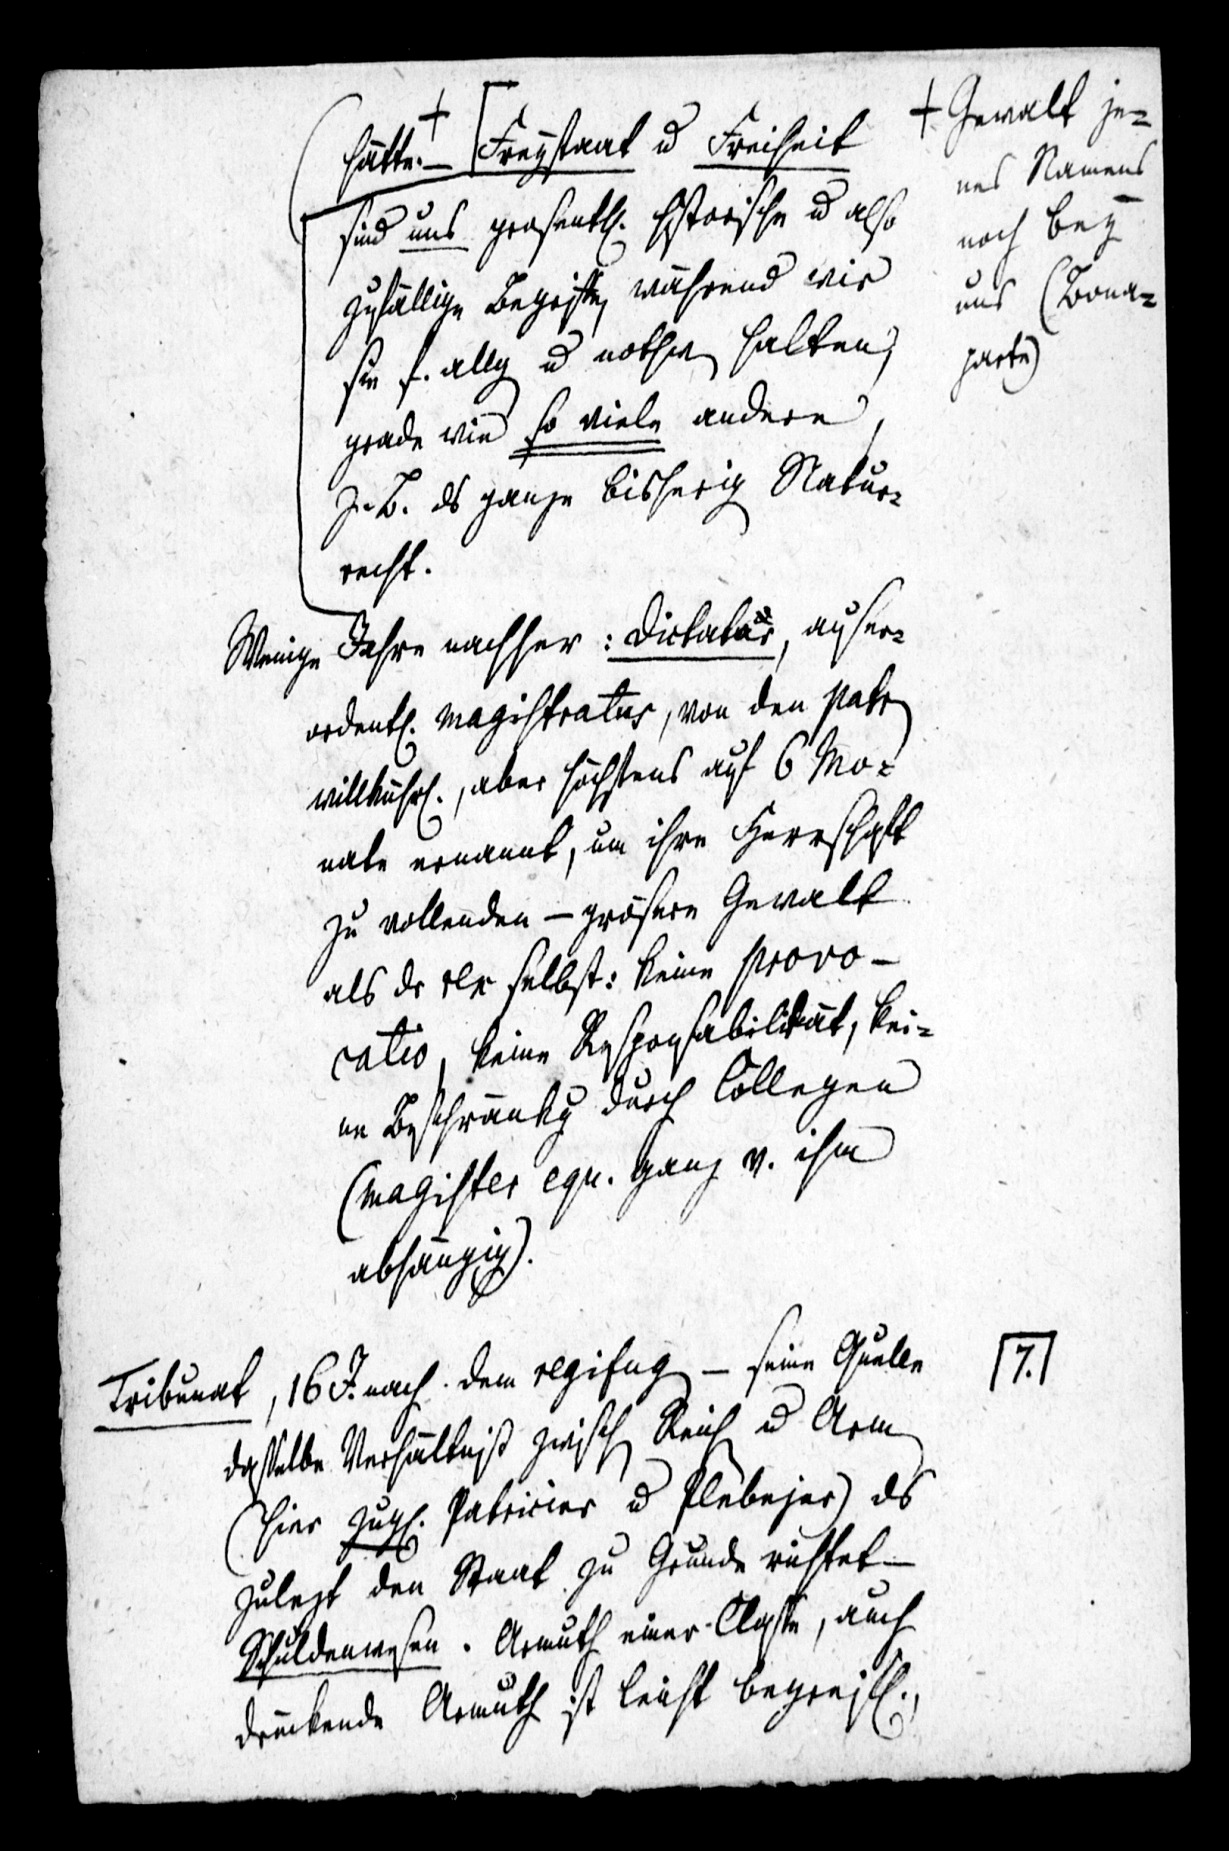 hätte. + – Freystaat u Freiheit
sind uns großentl. historische u also
zufällige Begriffe, während wir
sie f. allg u nothw halten,
grade wie so viele andere,
z. B. ds ganze bisherig Natur=
recht.
+ Gewalt je=
nes Namens
noch bey
uns (Bona=
parte)
Wenige Jahre nachher: Dictatur, außer=
ordentl. magistratus, von den patr
willkührl., aber höchstens auf 6 Mo=
nate ernannt, um ihre Herrschaft
zu vollenden – größere Gewalt
als dr rex selbst: keine provo–
catio, keine Responsabilität, kei=
ne Beschränkg durch Collegen
(magister equ. ganz v. ihm
abhängig).
7.
Tribunat, 16 J. nach dem regifug – seine Quelle
dasselbe Verhältniß zwisch Reich u Arm
(hier zugl. Patricier u Plebejer) ds
zulezt den Staat zu Grunde richtet –
Schuldenwesen. Armuth einer Classe, auch
drückende Armuth ist leicht begreifl.,